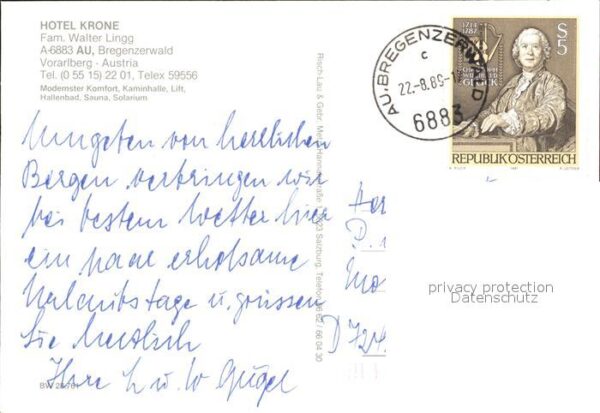 HOTEL KRONE
Fam. Walter Lingg
A-6883 AU, Bregenzerwald
Vorarlberg - Austria
Tel. (0 55 15) 22 01, Telex 59556
Modernster Komfort, Kaminhalle, Lift,
Hallenbad, Sauna, Solarium
AU, BREGENZERWALD
c
22.-8.89
6883
1714
1787
S
5
GLUCK
REPUBLIK ÖSTERREICH
Umgeben von herrlichen
Bergen verbringen wir
bei bestem Wetter hier
ein paar erholsame
Urlaubstage u. grüssen
Sie herzlich
Ihre L u. W Gügel
D 724
privacy protection
Datenschutz